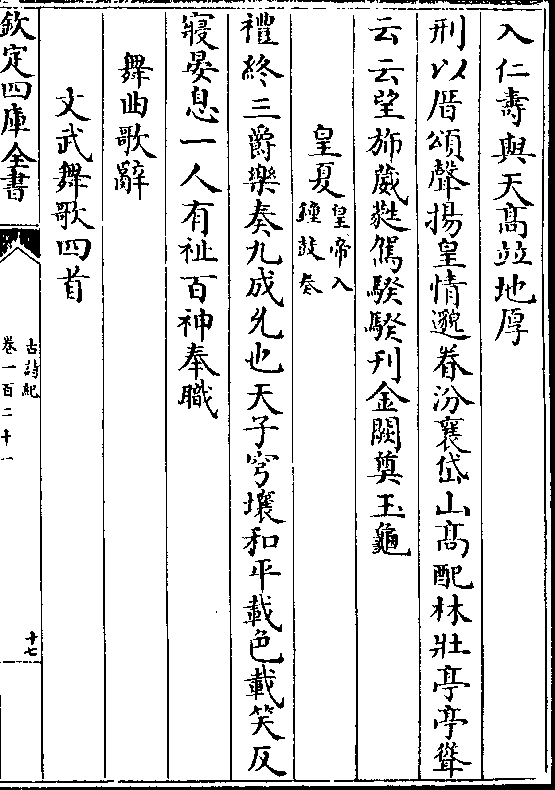 入仁壽與天髙竝地厚
刑以厝頌聲揚皇情邈眷汾襄岱山髙配林壯亭亭聳
云云望斾葳蕤駕騤騤刋金闕奠玉龜
皇夏皇帝入鐘鼓奏
禮終三爵樂奏九成允也天子穹壤和平載色載笑反
寢晏息一人有祉百神奉職
舞曲歌辭
文武舞歌四首
欽定四庫全書
古詩紀
卷一百二十一
十七